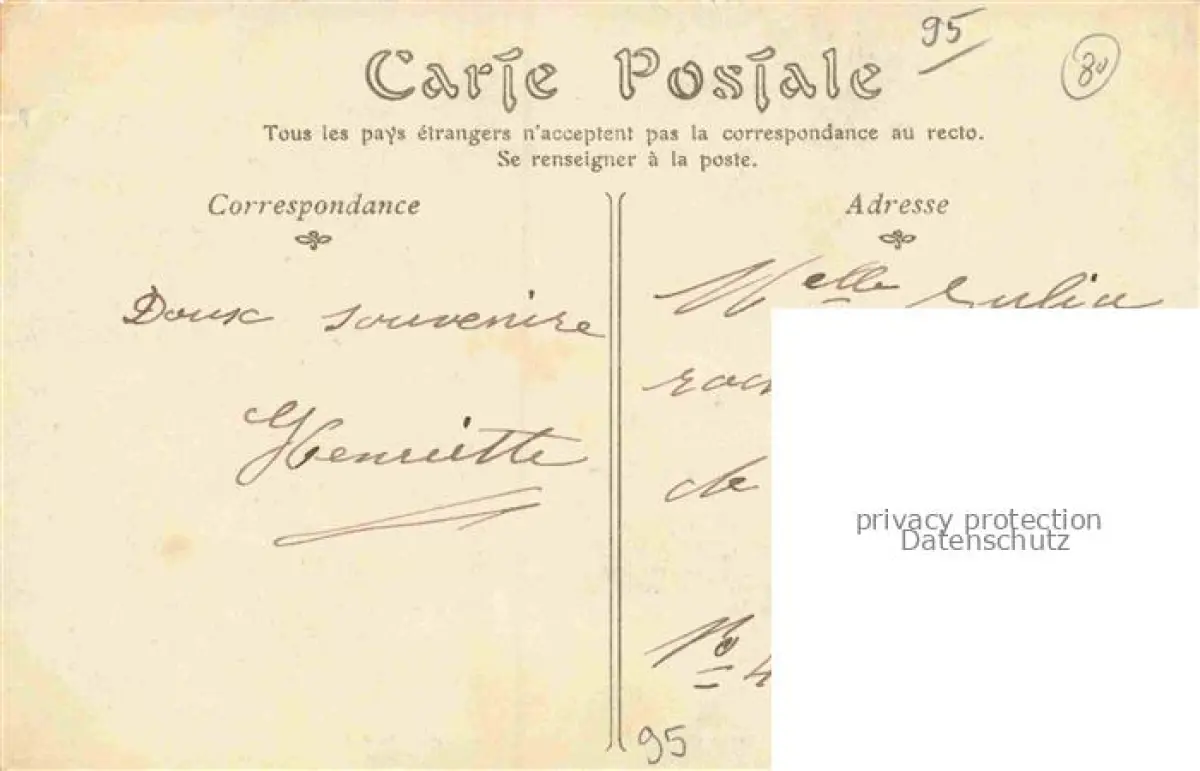 95
80
Carte Postale
Tous les pays étrangers n'acceptent pas la correspondance au recto.
Se renseigner à la poste.
Correspondance
Adresse
Doux souvenire
Henriette
Melle
de
No 4
95
privacy protection
Datenschutz